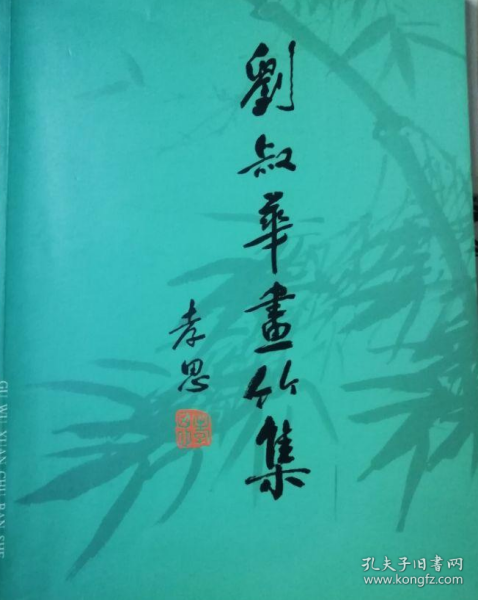 劉叔華畫竹集
孝思
GU WU XUAN CHU BAN SHE
孔夫子旧书网
www.kongfz.com